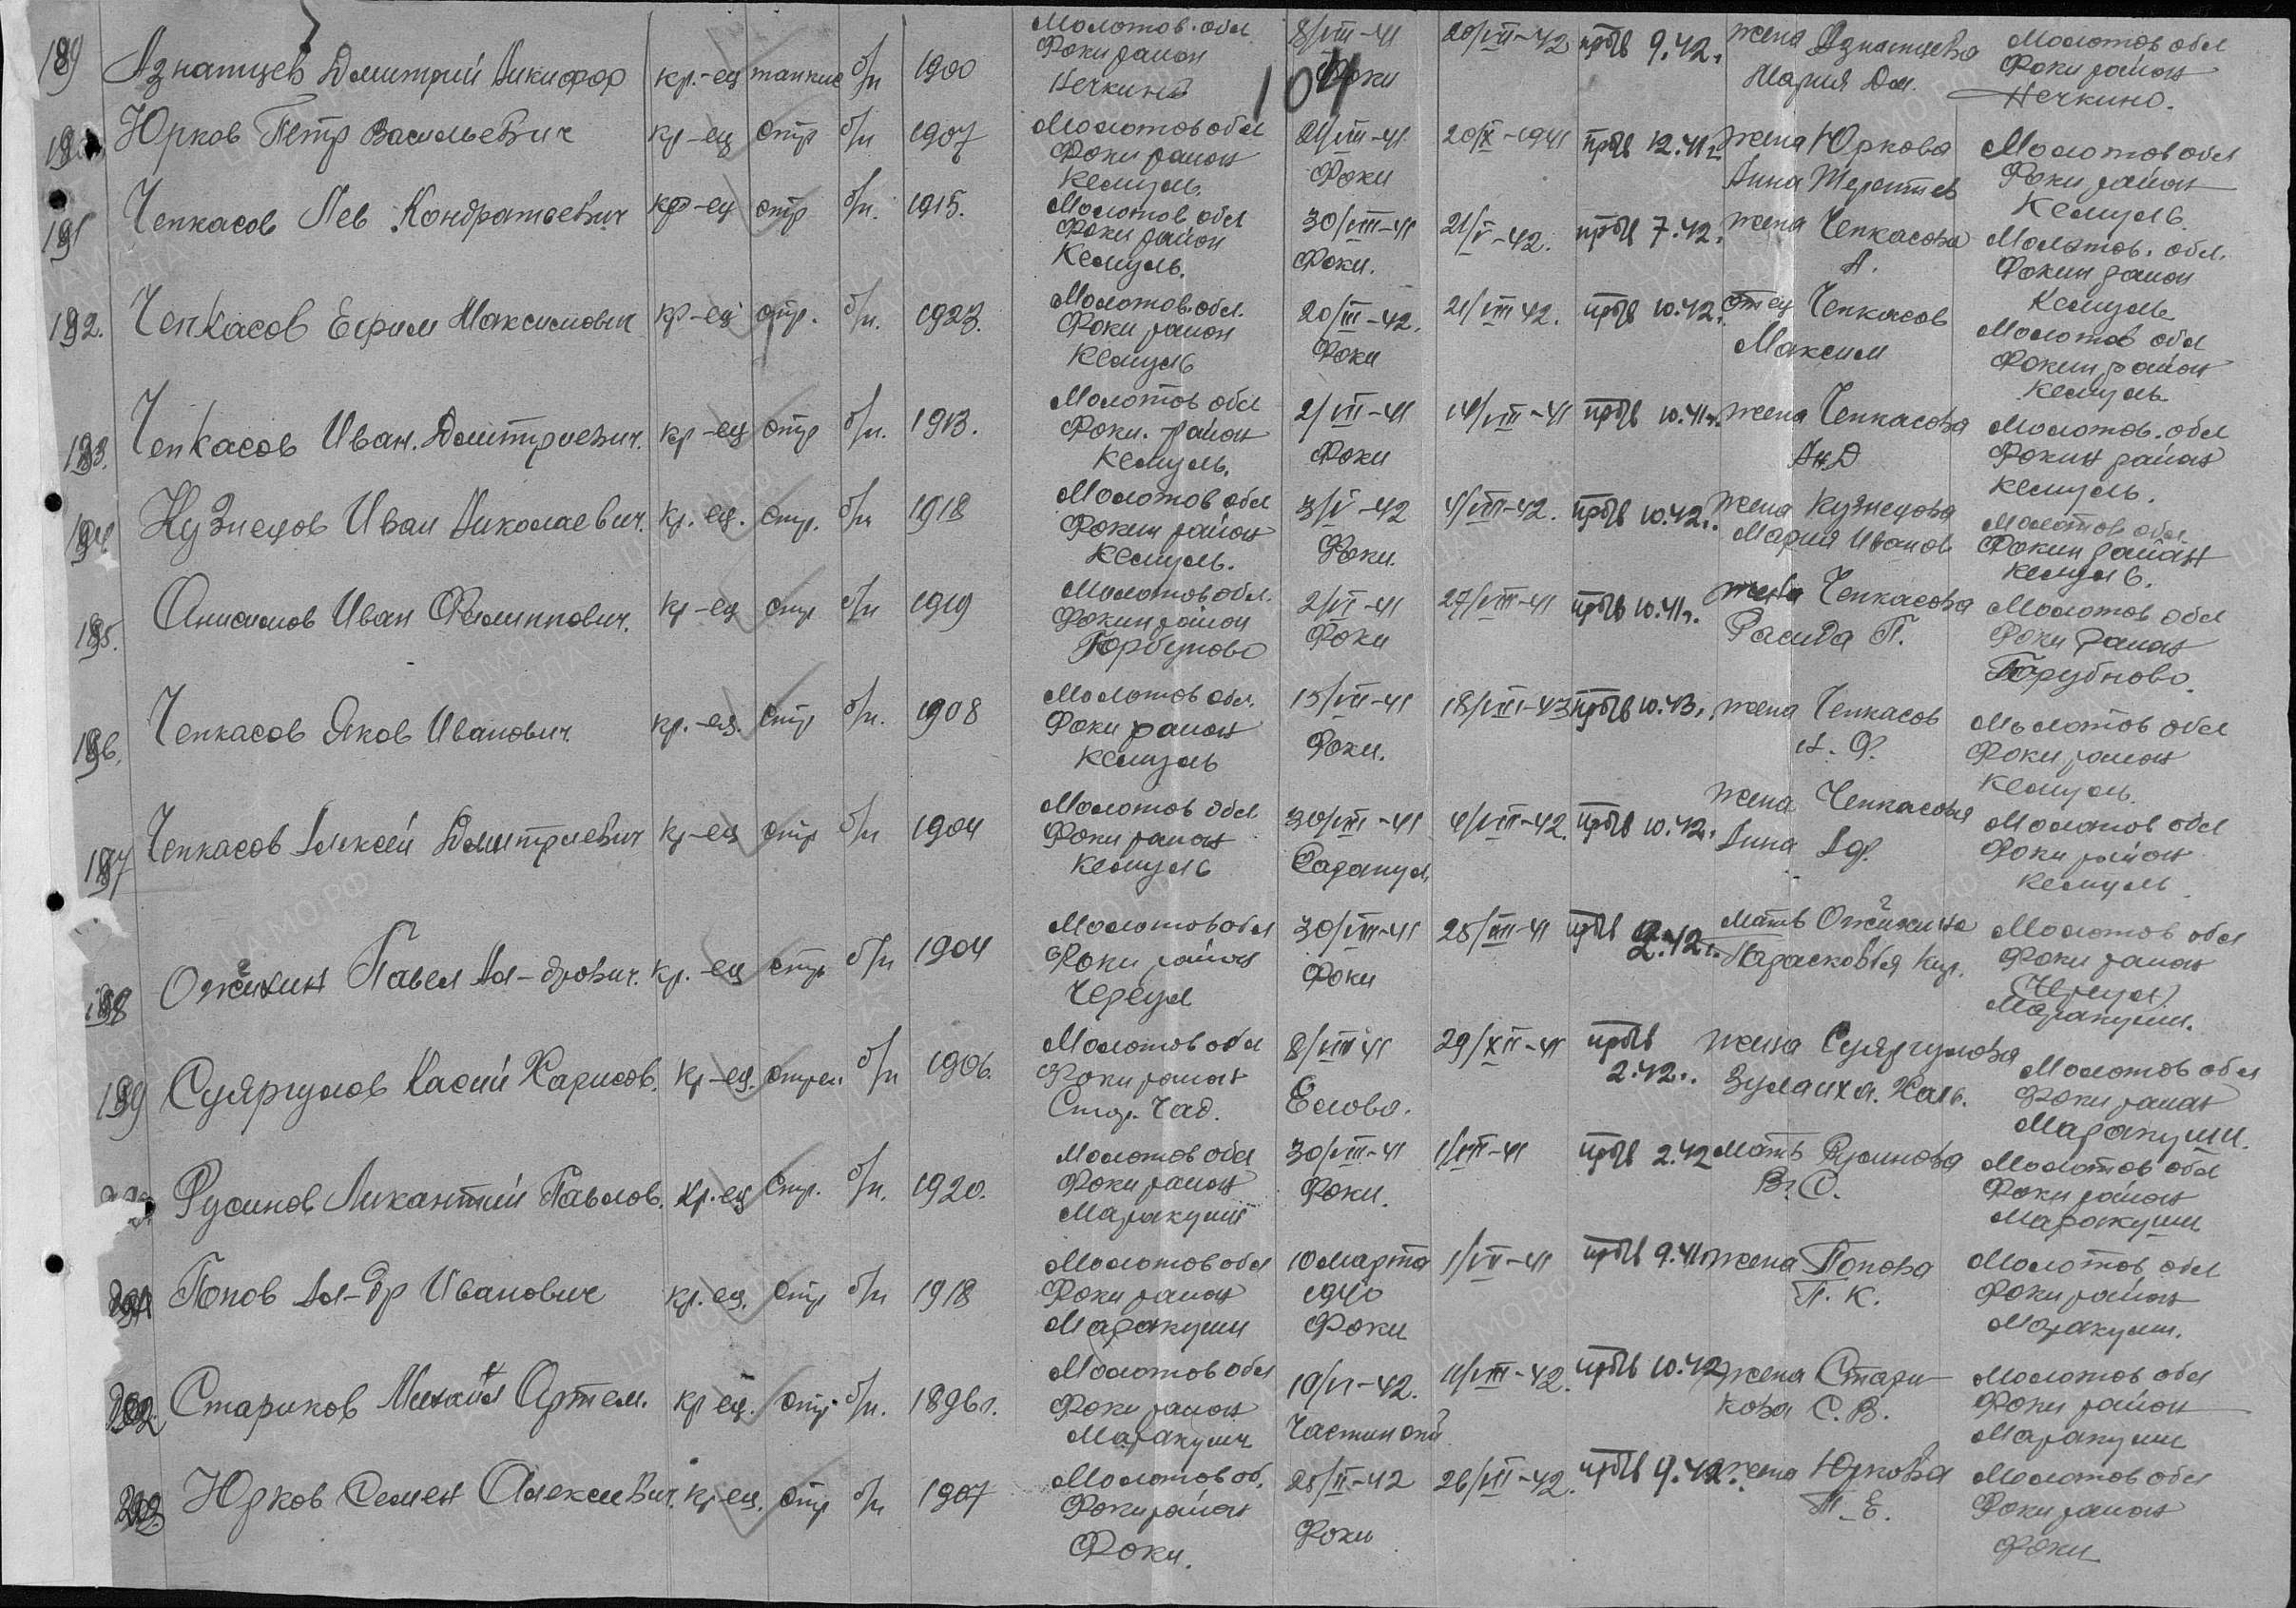 104
189 Азнатцев Дмитрий Никифор кр.-ец танкис б/п 1900 Молотов. обл Фоки район Нечкино 8/VIII-41 Фоки 20/VII-42 пр.б/в 9.42г. жена Азнатцева Мария Дм. Молотов обл Фоки район Нечкино.
190 Юрков Петр Васильевич кр-ец стр б/п 1907 Молотов обл Фоки район Кемуль. 21/VIII-41 Фоки 20/IX-1941 пр.б/в 12.41г. жена Юркова Анна Терентьев Молотов обл Фоки район Кемуль.
191 Чепкасов Лев Кондратьевич кр-ец стр б/п. 1915. Молотов обл Фоки район Кемуль. 30/VIII-41 Фоки. 21/V-42. пр.б/в 7.42г. жена Чепкасова А. Молотов. обл. Фокин район Кемуль
192. Чепкасов Ефим Максимович кр-ец стр. б/п. 1923. Молотов. обл. Фоки район Кемуль 20/III-42. Фоки 21/VIII 42. пр.б/в 10.42г. отец Чепкасов Максим Молотов обл Фокин район Кемуль
193. Чепкасов Иван. Дмитриевич. кр-ец стр б/п. 1913. Молотов обл Фоки. район Кемуль. 2/VII-41 Фоки 14/VIII-41 пр.б/в 10.41г. жена Чепкасова Ан.Д Молотов. обл Фокин район Кемуль.
194 Кузнецов Иван Николаевич. кр.-ец. стр. б/п 1918 Молотов обл Фокин район Кемуль. 3/V-42 Фоки. 4/VIII-42. пр.б/в 10.42г. жена Кузнецова Мария Иванов Молотов обл. Фокин район Кемуль.
195. Анисимов Иван Филиппович. кр-ец стр б/п 1919 Молотов обл. Фокин район Горбуново 2/VI-41 Фоки 27/VIII-41 пр.б/в 10.41г. жена Чепкасова П. Молотов обл Фоки район
196. Чепкасов Яков Иванович. кр.-ец. стр б/п. 1908 Молотов обл. Фоки район Кемуль 15/VII-41 Фоки. 18/VIII-43 пр.б/в 10.43г. жена Чепкасов Ф. Молотов обл Фоки район Кемуль.
197 Чепкасов Алексей Дмитриевич кр-ец стр б/п 1904 Молотов обл Фоки район Кемуль 30/VIII-41 Сарапул. 4/VIII-42. пр.б/в 10.42г. жена Чепкасова Анна Аф. Молотов обл Фоки район Кемуль
198 Ожгихин Павел Ал-дрович. кр.-ец стр б/п 1904 Молотов обл Фоки район 30/VIII-41 Фоки пр.б/в 2.42г. мать Ожгихина Парасковья Кир. Молотов обл Фоки район Маракуши.
199 Суляргулов Касий Харисов. кр-ец. стрел б/п 1906. Молотов обл Фоки район 8/VIII 41 Елово. 29/XII-41 пр.б/в 2.42г. жена Молотов обл Фоки район Маракуши.
200 Русинов Ликантий Павлов. кр.-ец стр. б/п. 1920. Молотов обл Фоки район Маракуши 30/VIII-41 Фоки. пр.б/в 2.42 мать Русинова В.С. Молотов обл Фоки район Маракуши
201 Попов Ал-др Иванович кр.ец. стр б/п 1918 Молотов обл Фоки район Маракуши 10 марта 1940 Фоки 1/VII-41 пр.б/в 9.41г. жена Попова П. К. Молотов обл Фоки район Маракуши.
202 Стариков Михаил Артем. кр-ец. стр б/п. 1896г. Молотов обл Фоки район Маракуши 10/VI-42. Частинский 11/VIII-42. пр.б/в 10.42 жена Старикова С. В. Молотов обл Фоки район Маракуши
203. Юрков Семен Алексеевич. кр-ец. стр б/п 1907 Молотов об. Фоки район Фоки. 28/II-42 Фоки 26/VII-42. пр.б/в 9.42г. жена Юркова Т. Е. Молотов обл Фоки район Фоки